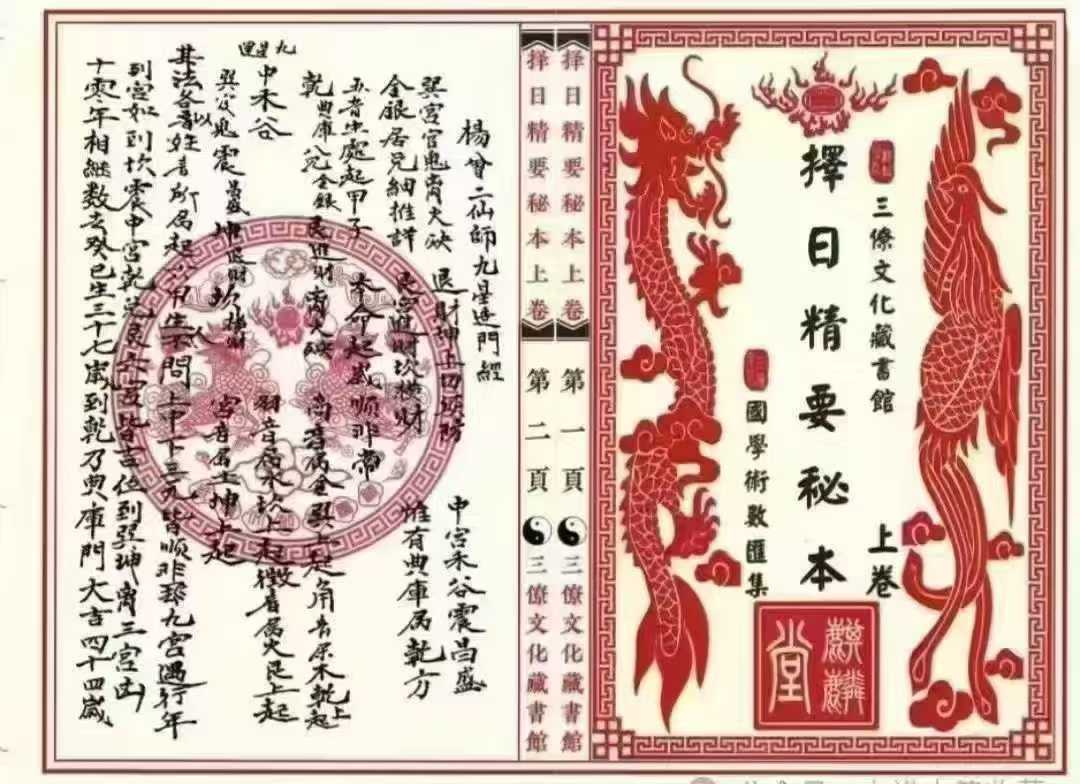 三僚文化藏書館
擇日精要秘本
上卷
國學術數匯集
麒麟堂
择日精要秘本上卷 第一頁 三僚文化藏書館
择日精要秘本上卷 第二頁 三僚文化藏書館
楊曾二仙師九星造門經
巽宮官鬼火缺 退財坤上切須防 中宮禾谷震昌盛
金銀居兌細推詳 艮宮進財坎横財 惟有典庫属乾方
五音出處起甲子 本命起歲順非常
乾典庫兌金銀艮進財火缺 商音属金巽上起角音属木乾上起
中禾谷 羽音属水坎上起徵音属火艮上起
九星
巽官鬼震昌盛坤退財坎横財 宮音居土坤上起
其法各以姓音所属起六甲生人不問上中下三元皆順非九宮遇行年
到宮如到坎震中宮乾兌艮六宮皆吉位到巽坤三宮凶
十零年相継数去癸巳生三十七歲到乾乃典庫門大吉四十四歲